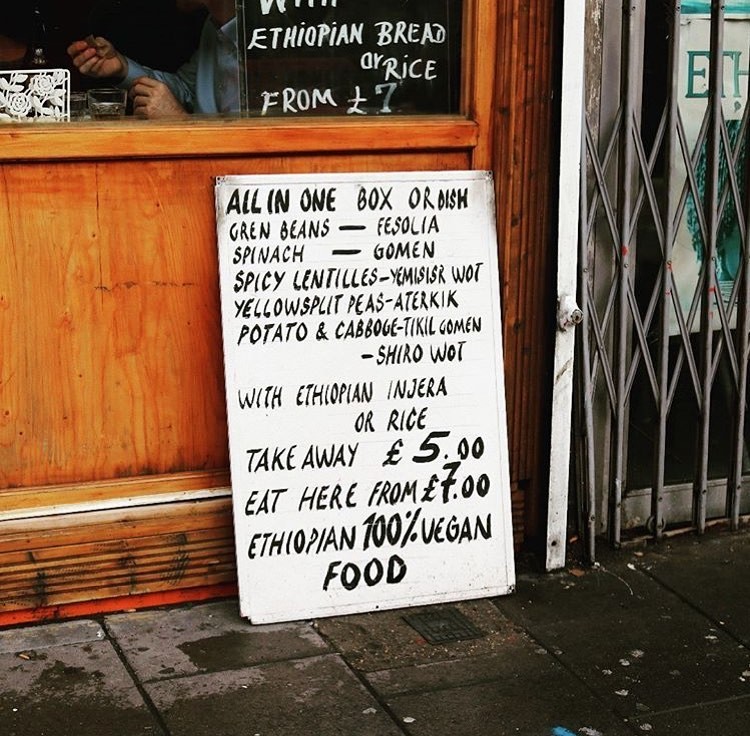 WITH
ETHIOPIAN BREAD
or RICE
FROM £7
ALL IN ONE BOX OR DISH
GREN BEANS — FESOLIA
SPINACH — GOMEN
SPICY LENTILLES-YEMISISR WOT
YELLOWSPLIT PEAS-ATERKIK
POTATO & CABBOGE-TIKIL GOMEN
-SHIRO WOT
WITH ETHIOPIAN INJERA
OR RICE
TAKE AWAY £5.00
EAT HERE FROM £7.00
ETHIOPIAN 100% VEGAN
FOOD